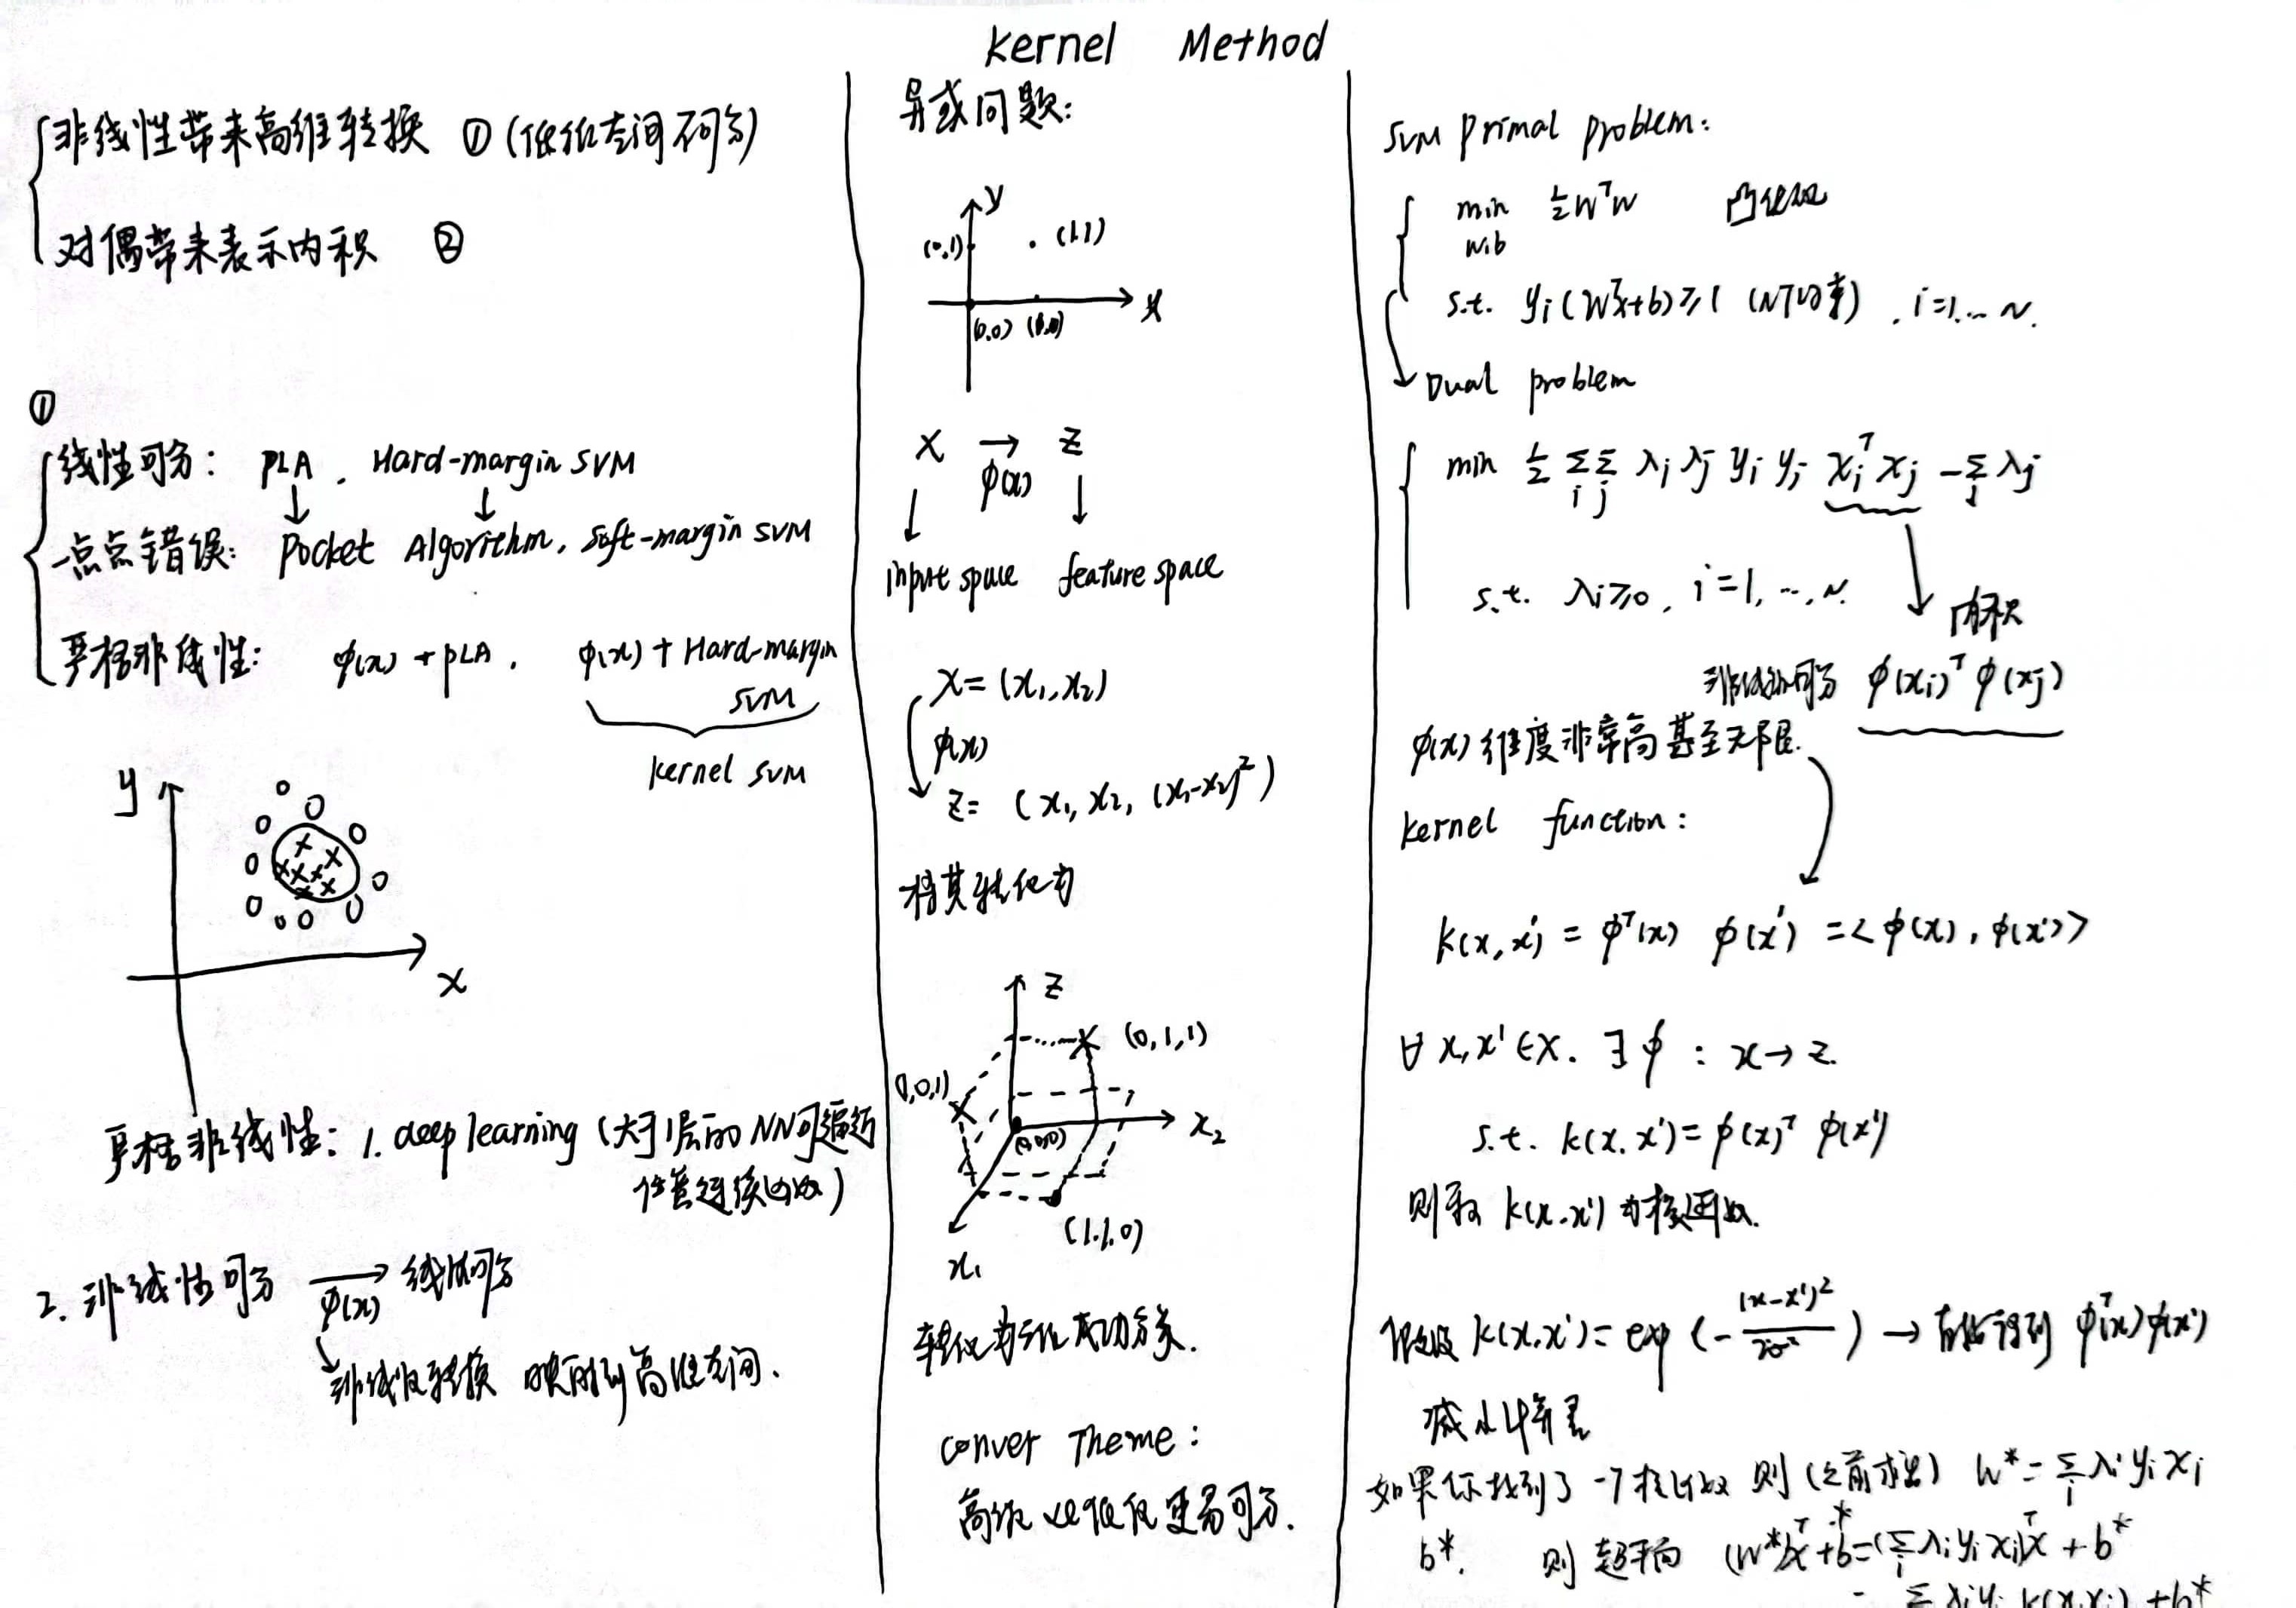 Kernel Method
非线性带来高维转换 ① (低维空间不可分)
对偶带来表示内积 ②
①
线性可分: PLA, Hard-margin SVM
一点点错误: Pocket Algorithm, Soft-margin SVM
严格非线性: φ(x) + PLA, φ(x) + Hard-margin
SVM
kernel SVM
y
x
严格非线性: 1. deep learning (大于1层的NN可逼近
任意连续函数)
2. 非线性可分 → 线性可分
φ(x)
非线性转换 映射到高维空间.
异或问题:
y
(0,1) (1,1)
(0,0) (1,0) x
X → Z
φ(x)
input space feature space
x = (x₁, x₂)
φ(x)
z = (x₁, x₂, (x₁-x₂)²)
将其转化为
z
(0,1,1)
(1,0,1)
x₂
(0,0,0)
(1,1,0)
x₁
转化为三维成功分类.
Conver Theme:
高维 比低维更易可分.
SVM Primal Problem:
min ½ WᵀW
w,b
s.t. yᵢ(Wᵀx+b) ≥ 1 (N个约束), i=1...N.
Dual problem
min ½ Σᵢ Σⱼ λᵢ λⱼ yᵢ yⱼ xᵢᵀ xⱼ - Σⱼ λⱼ
s.t. λᵢ ≥ 0, i = 1, ..., N.
内积
非线性可分 φ(xᵢ)ᵀ φ(xⱼ)
φ(x) 维度非常高甚至无限.
kernel function:
k(x, x') = φᵀ(x) φ(x') = <φ(x), φ(x')>
∀ x, x' ∈ X. ∃ φ : x → z.
s.t. k(x, x') = φ(x)ᵀ φ(x')
则称 k(x, x') 为核函数.
假设 k(x, x') = exp (- (x-x')² / 2σ²) → 直接得到 φᵀ(x) φ(x')
减小计算量
如果你找到了一个核函数 则 (之前求出) W* = Σᵢ λᵢ yᵢ xᵢ
b*. 则超平面 (W*)ᵀx + b* = (Σᵢ λᵢ yᵢ xᵢ)ᵀx + b*
= Σ λᵢ yᵢ k(x, xᵢ) + b*